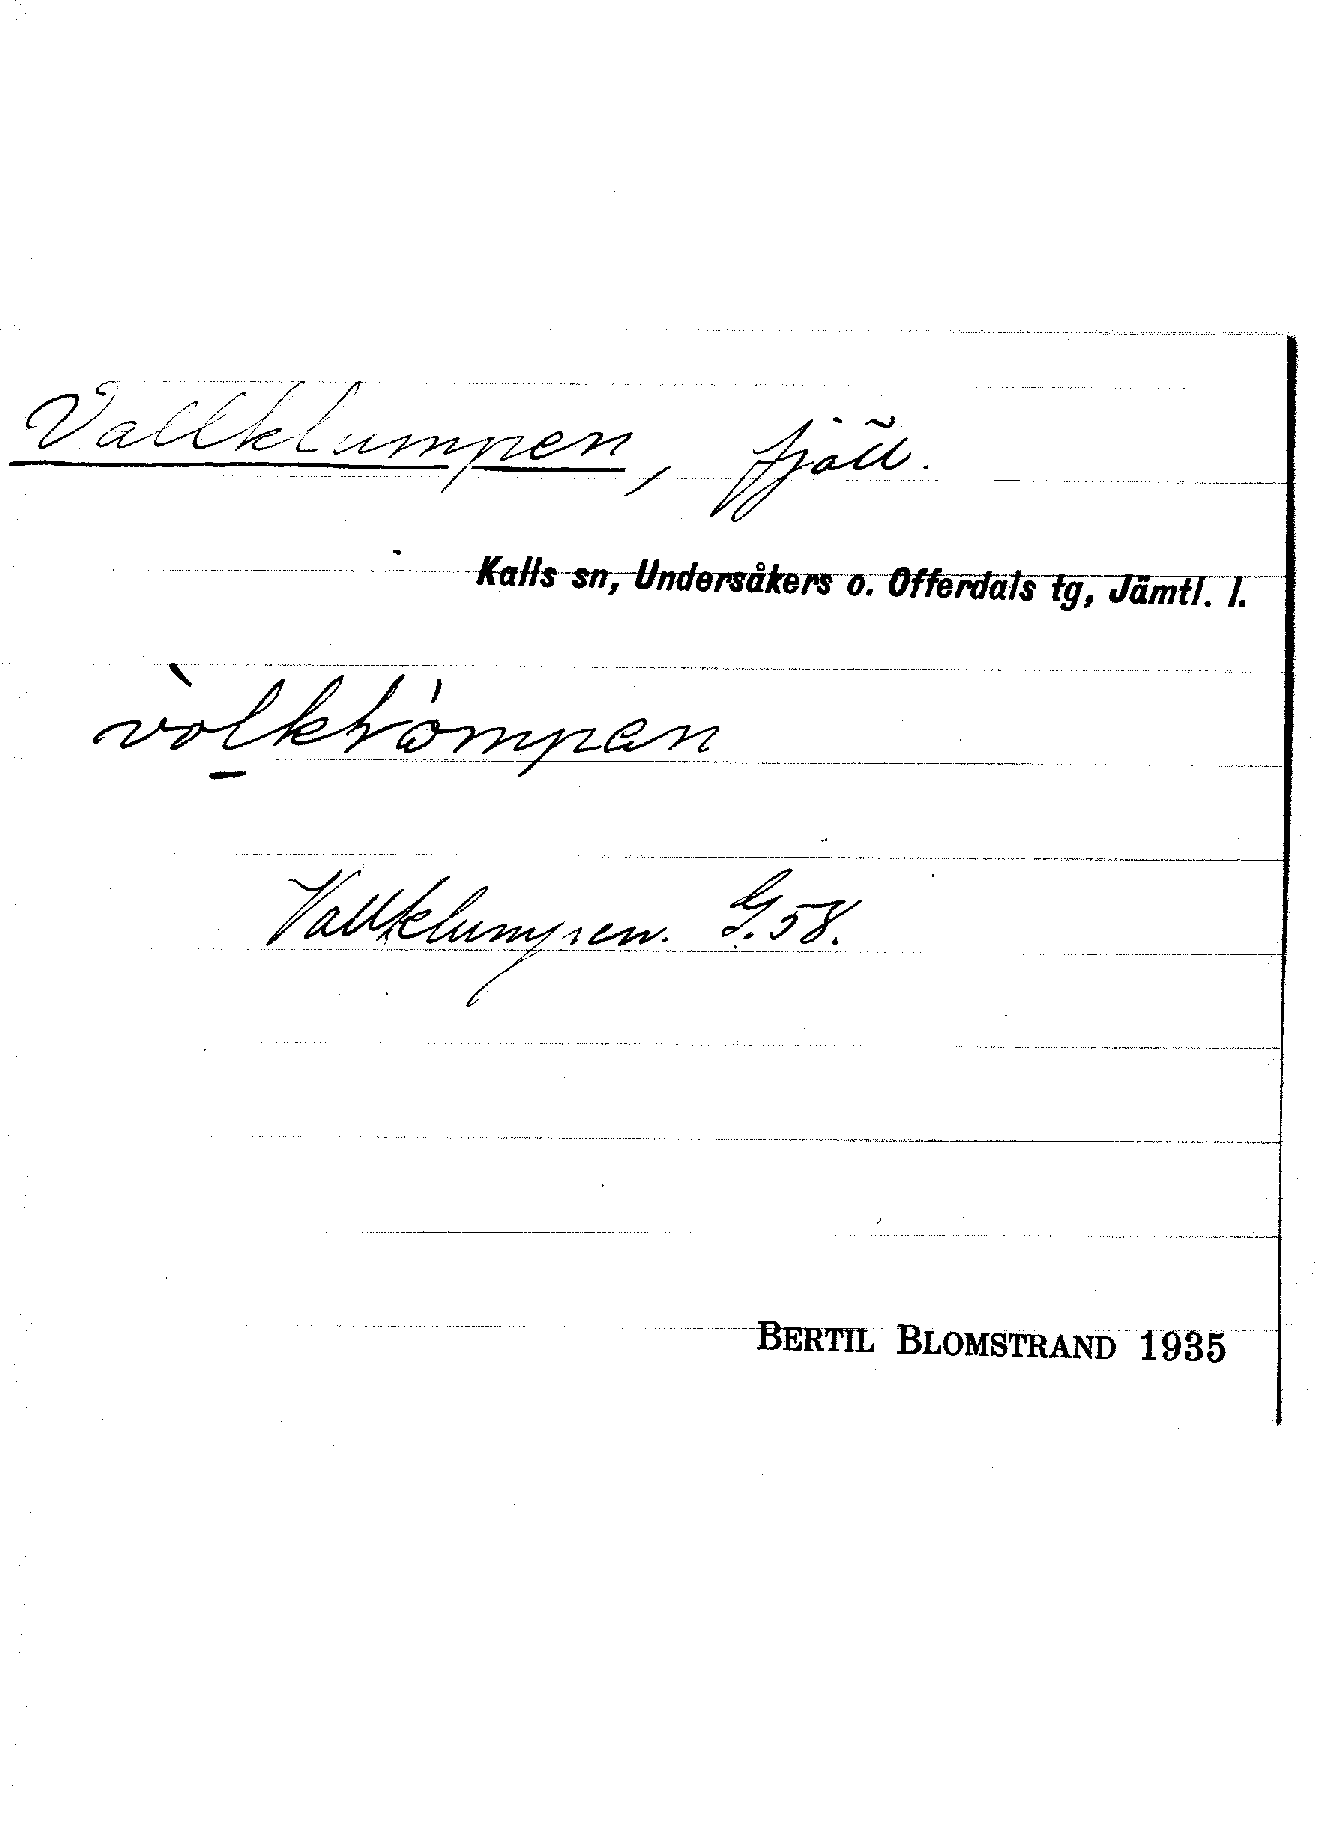 Vallklumpen, fjäll.
Kalls sn, Undersåkers o. Offerdals tg, Jämtl. l.
Vallklumpen. G. 58.
BERTIL BLOMSTRAND 1935